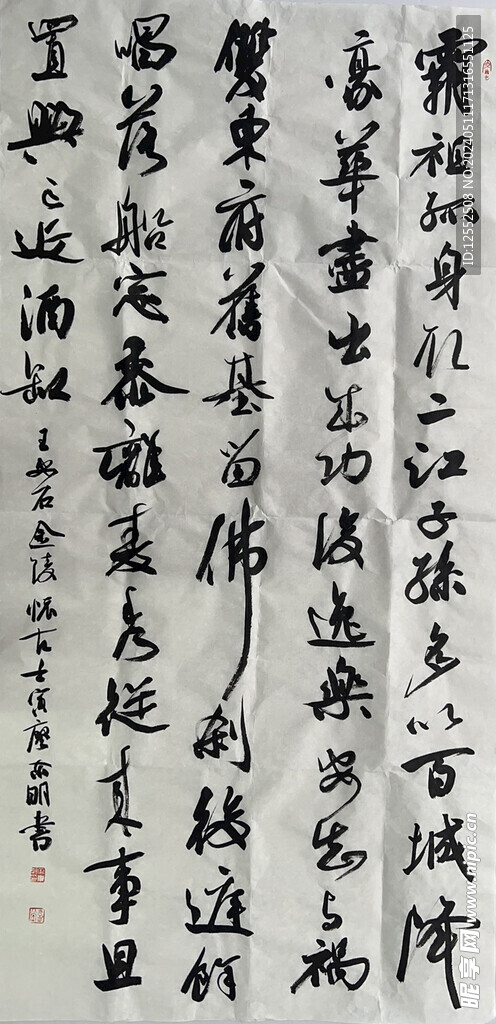 霸祖孤身取二江子孫多以百城降
豪華盡出成功後逸樂安知与禍
雙東府舊基留佛刹後庭餘
唱落船窓黍離麦秀從来事且
置興亡近酒缸
王安石金陵懷古壬寅明書
ID:12552508 NO:20240511171316551125
昵享网 www.nipic.cn